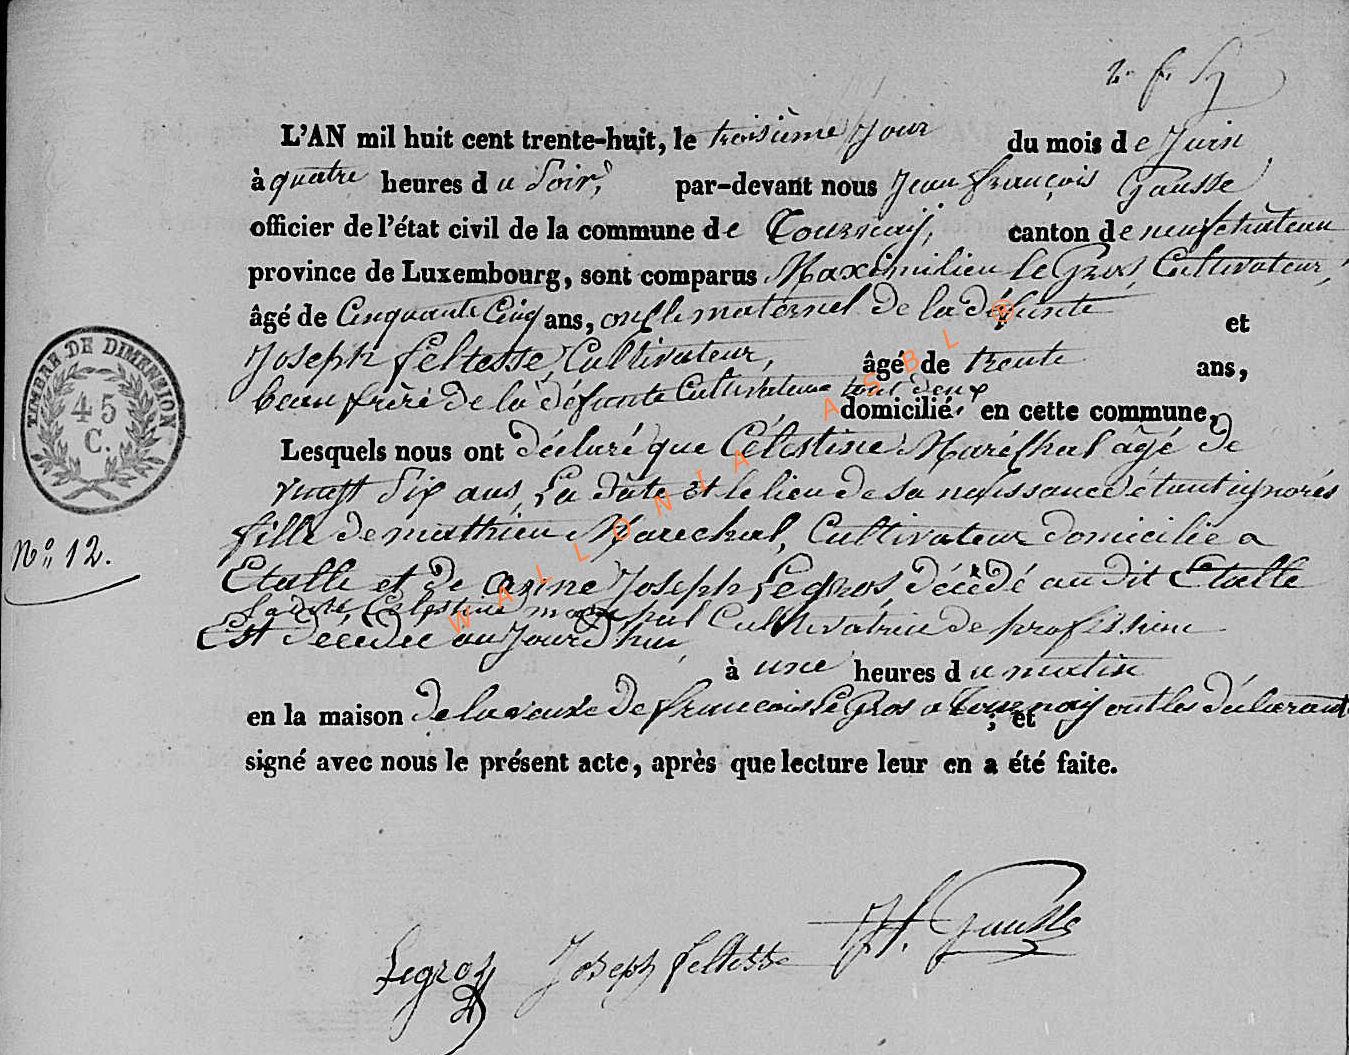 L'AN mil huit cent trente-huit, le troisième Jour du mois de Juin
à quatre heures du Soir, par-devant nous Jean françois Gausse
officier de l'état civil de la commune de Tournay, canton de neufchâteau
province de Luxembourg, sont comparus Maximilien le Gros, Cultivateur,
âgé de Cinquante Cinq ans, oncle maternel de la défunte et
Joseph feltesse, Cultivateur, âgé de trente ans,
beau frère de la défunte Cultivateur tout deux domiciliés en cette commune,
Lesquels nous ont déclaré que Célestine Maréchal âgé de
vingt Six ans, La date et le lieu de sa naissance étant ignorés
fille de mathieu Marechal, Cultivateur domicilié a
Etalle et de Anne Joseph Legros, décédé au dit Etalle
Ladite Celestine Cultivatrice de profession
Est décédée aujourd'hui,
à une heures du matin
en la maison de la veuve de francois le Gros a Tournay ont les déclarant
; et
signé avec nous le présent acte, après que lecture leur en a été faite.
TIMBRE DE DIMENSION
45
C.
No. 12.
Legros Joseph feltesse J f. Gausse
WALLONIA ASBL ®